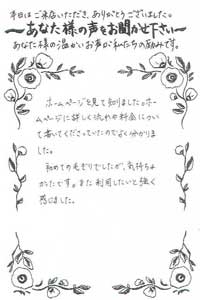 本日はご来店いただき、ありがとうございました。
～あなた様の声をお聞かせ下さい～
あなた様の温かいお声が私たちの励みです。
ホームページを見て知りました。ホー
ムページに詳しく流れや料金につい
て書いてくださっていたのでよく分かりまし
た。
初めての毛ぞりでしたが、気持ちよ
かったです。また利用したいと強く
感じました。